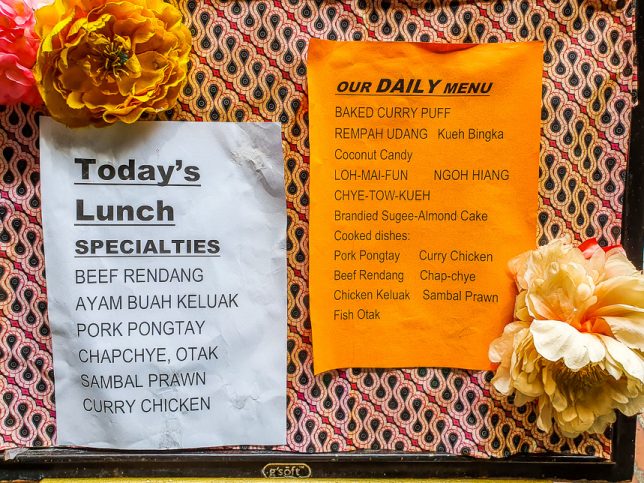 Today's
Lunch
SPECIALTIES
BEEF RENDANG
AYAM BUAH KELUAK
PORK PONGTAY
CHAPCHYE, OTAK
SAMBAL PRAWN
CURRY CHICKEN
OUR DAILY MENU
BAKED CURRY PUFF
REMPAH UDANG Kueh Bingka
Coconut Candy
LOH-MAI-FUN NGOH HIANG
CHYE-TOW-KUEH
Brandied Sugee-Almond Cake
Cooked dishes:
Pork Pongtay Curry Chicken
Beef Rendang Chap-chye
Chicken Keluak Sambal Prawn
Fish Otak
g'soft